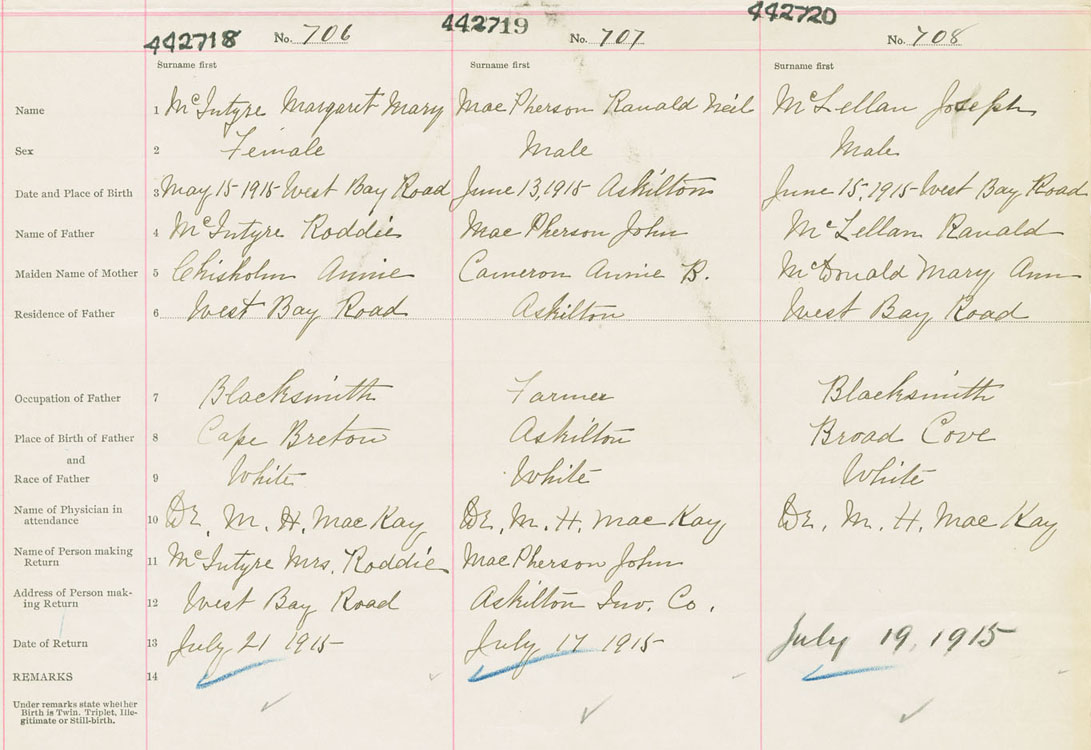 442718 No. 706 442719 No. 707 442720 No. 708
Surname first Surname first Surname first
Name 1 McIntyre Margaret Mary MacPherson Ranald Neil McLellan Joseph
Sex 2 Female Male Male
Date and Place of Birth 3 May 15 1915 West Bay Road June 13, 1915 Askilton June 15, 1915 West Bay Road
Name of Father 4 McIntyre Roddie MacPherson John McLellan Ranald
Maiden Name of Mother 5 Chisholm Annie Cameron Annie B. McDonald Mary Ann
Residence of Father 6 West Bay Road Askilton West Bay Road
Occupation of Father 7 Blacksmith Farmer Blacksmith
Place of Birth of Father 8 Cape Breton Askilton Broad Cove
and
Race of Father 9 White White White
Name of Physician in
attendance 10 M. H. MacKay M. H. MacKay M. H. MacKay
Name of Person making
Return 11 McIntyre Mrs. Roddie MacPherson John
Address of Person mak-
ing Return 12 West Bay Road Askilton Inv. Co.
Date of Return 13 July 21 1915 July 17 1915 July 19, 1915
REMARKS 14
Under remarks state whether
Birth is Twin, Triplet, Ille-
gitimate or Still-birth.